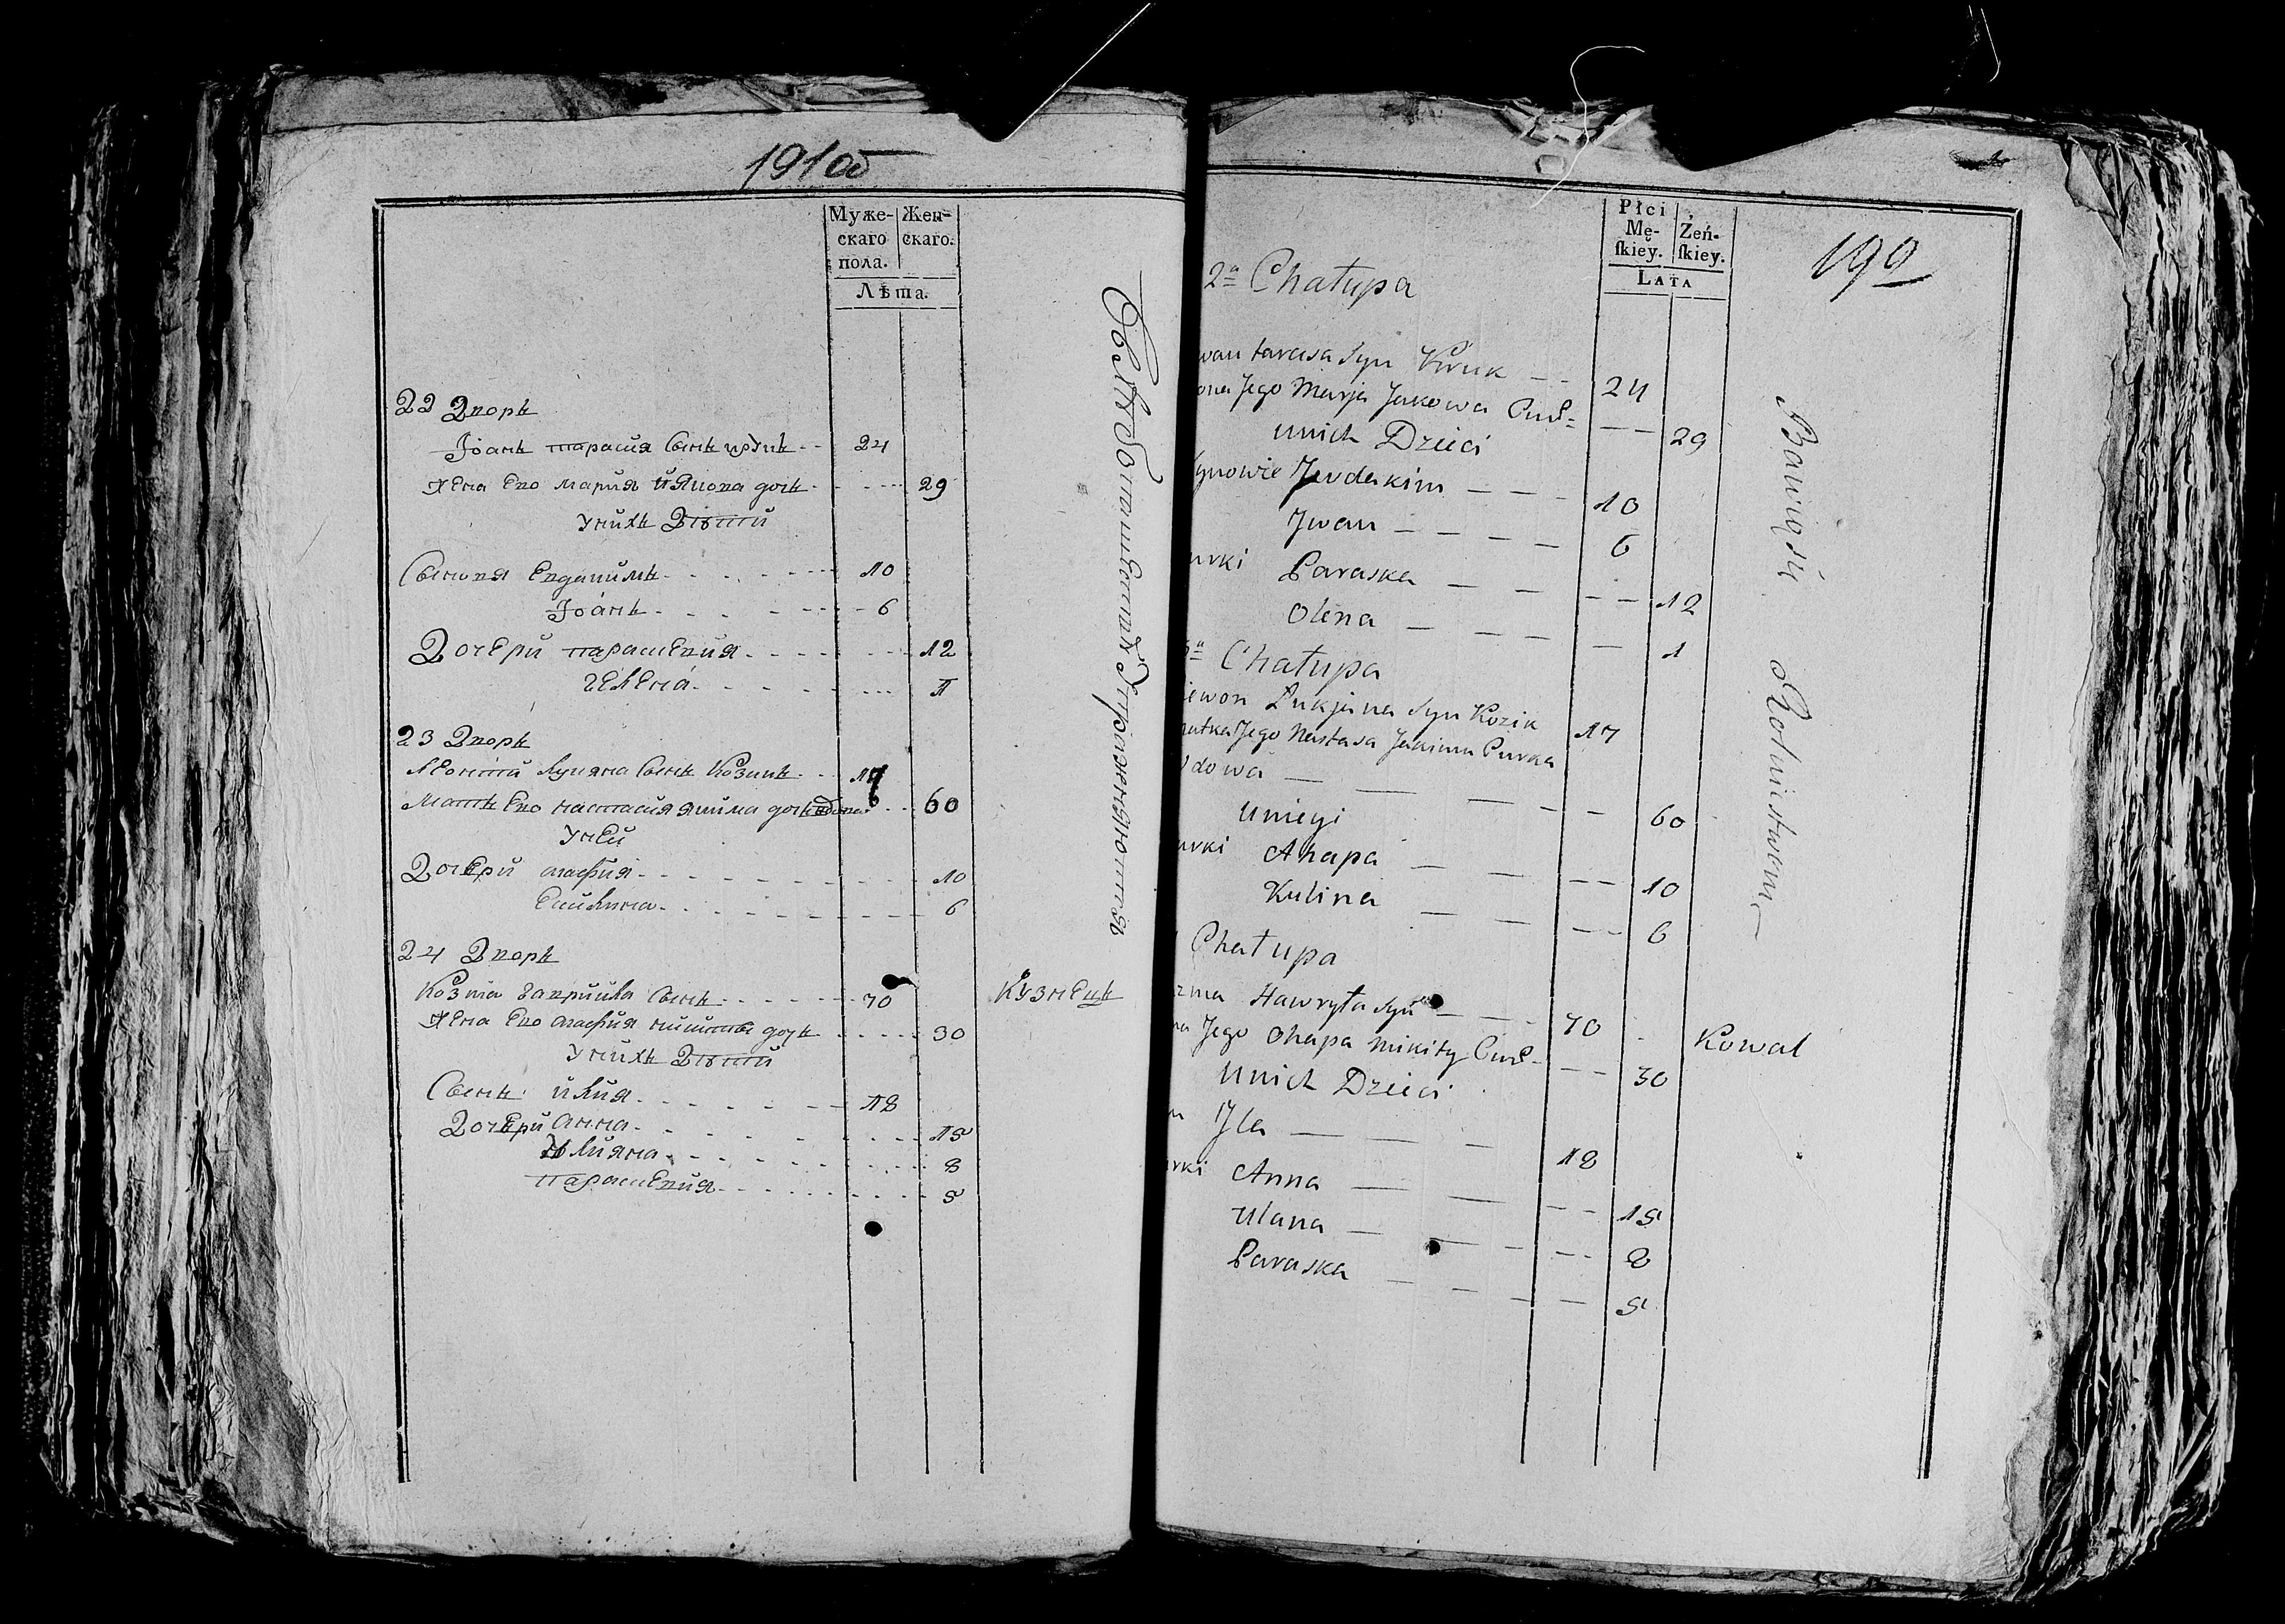 191об
Муже- Жен-
скаго скаго.
пола.
Лѣта.
22 Дворъ
Іоанъ тараcия Сынъ крукъ 24
Жена Его Мария Иякова дочъ 29
Унихъ Дѣтти
Сыновя Евдакимъ 10
Іоанъ 6
Дочери параскевия 12
Гелена 1
23 Дворъ
Леонтій Лукяна Сынъ Козикъ 17
Матъ Его настасия якима дочъ вдова 60
Уней
Дочери агафия 10
Екилина 6
24 Дворъ
Козма гаврийла Сынъ 70 Кузнецъ
Жена Его агафия микиты дочъ 30
Унихъ Дѣтти
Сынъ илия 18
Дочери анна 15
Улияна 8
параскевия 5
Хлѣбопашествомъ Упражняются
Płci Żeń-
Mę- ſkiey.
ſkiey.
LATA
190
2ª Chałupa
wan tarasa Syn Kruk 24
ona Jego Marja Jakowa Cur- 29
unich Dzieci
ynowie Jewdakim 10
Jwan 6
urki Paraska 12
Olena 1
3ª Chałupa
iewon Łukjana Syn Kozik 17
matka Jego Nastasa Jakima Curka
wdowa 60
unieyi
urki Ahapa 10
Kulina 6
Chałupa
zma Hawryła Syn 70 Kowal
na Jego Ohapa Mikity Cur- 30
unich Dzieci
n Jla 18
urki Anna 15
Ulana 8
Paraska 5
Bawią się Rolnictwem